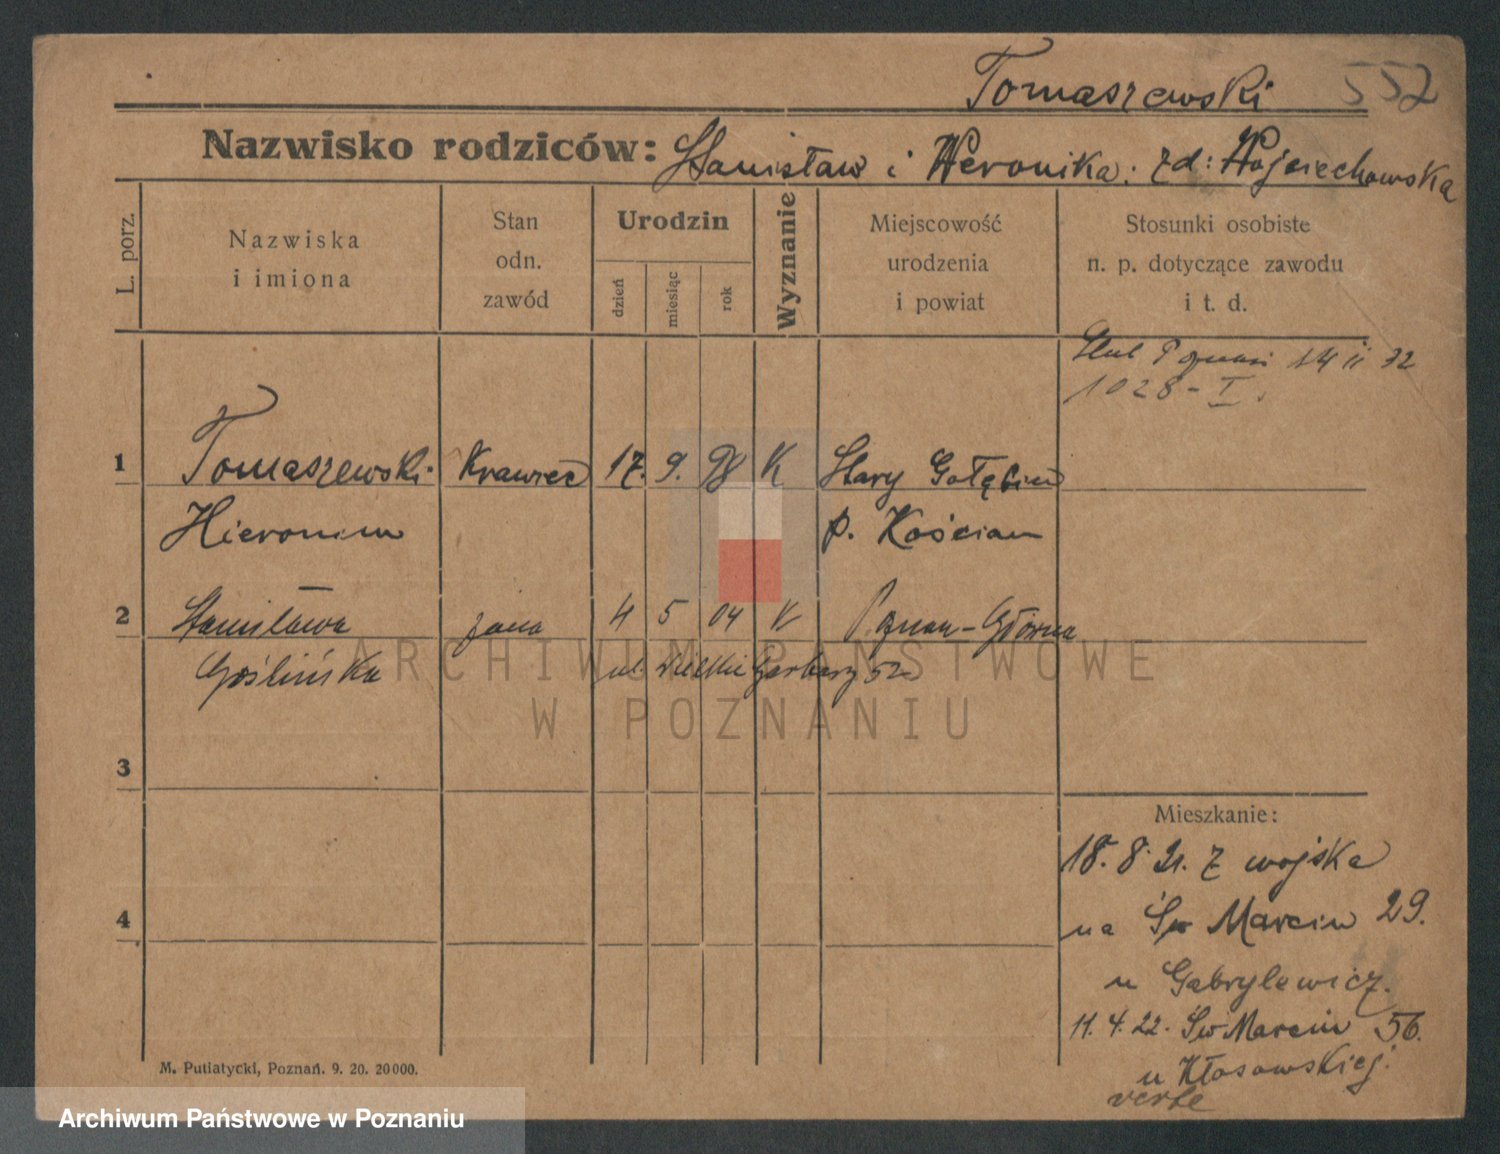 Tomaszewski 552
Nazwisko rodziców: Stanisław i Weronika. zd: Wojciechowska
L. porz.
Nazwiska
i imiona
Stan
odn.
zawód
Urodzin
dzień
miesiąc
rok
Wyznanie
Miejscowość
urodzenia
i powiat
Stosunki osobiste
n. p. dotyczące zawodu
i t. d.
Ślub Poznań 14 II 32
1028 - I.
1 Tomaszewski Krawiec 17. 9. 98 K Stary Gołębin
Hieronim p. Kościan
2 Stanisława żona 4 5 04 K Poznań-Główna
Goślińska ul. Wielkie Garbary 52
3
Mieszkanie:
18. 8. 21. z wojska
4
na Św Marcin 29.
u Gabrylewicz.
11. 4. 22. Św Marcin 56.
u Kłosowskiej.
verte
M. Putiatycki, Poznań. 9. 20. 20000.
ARCHIWUM PAŃSTWOWE
W POZNANIU
Archiwum Państwowe w Poznaniu